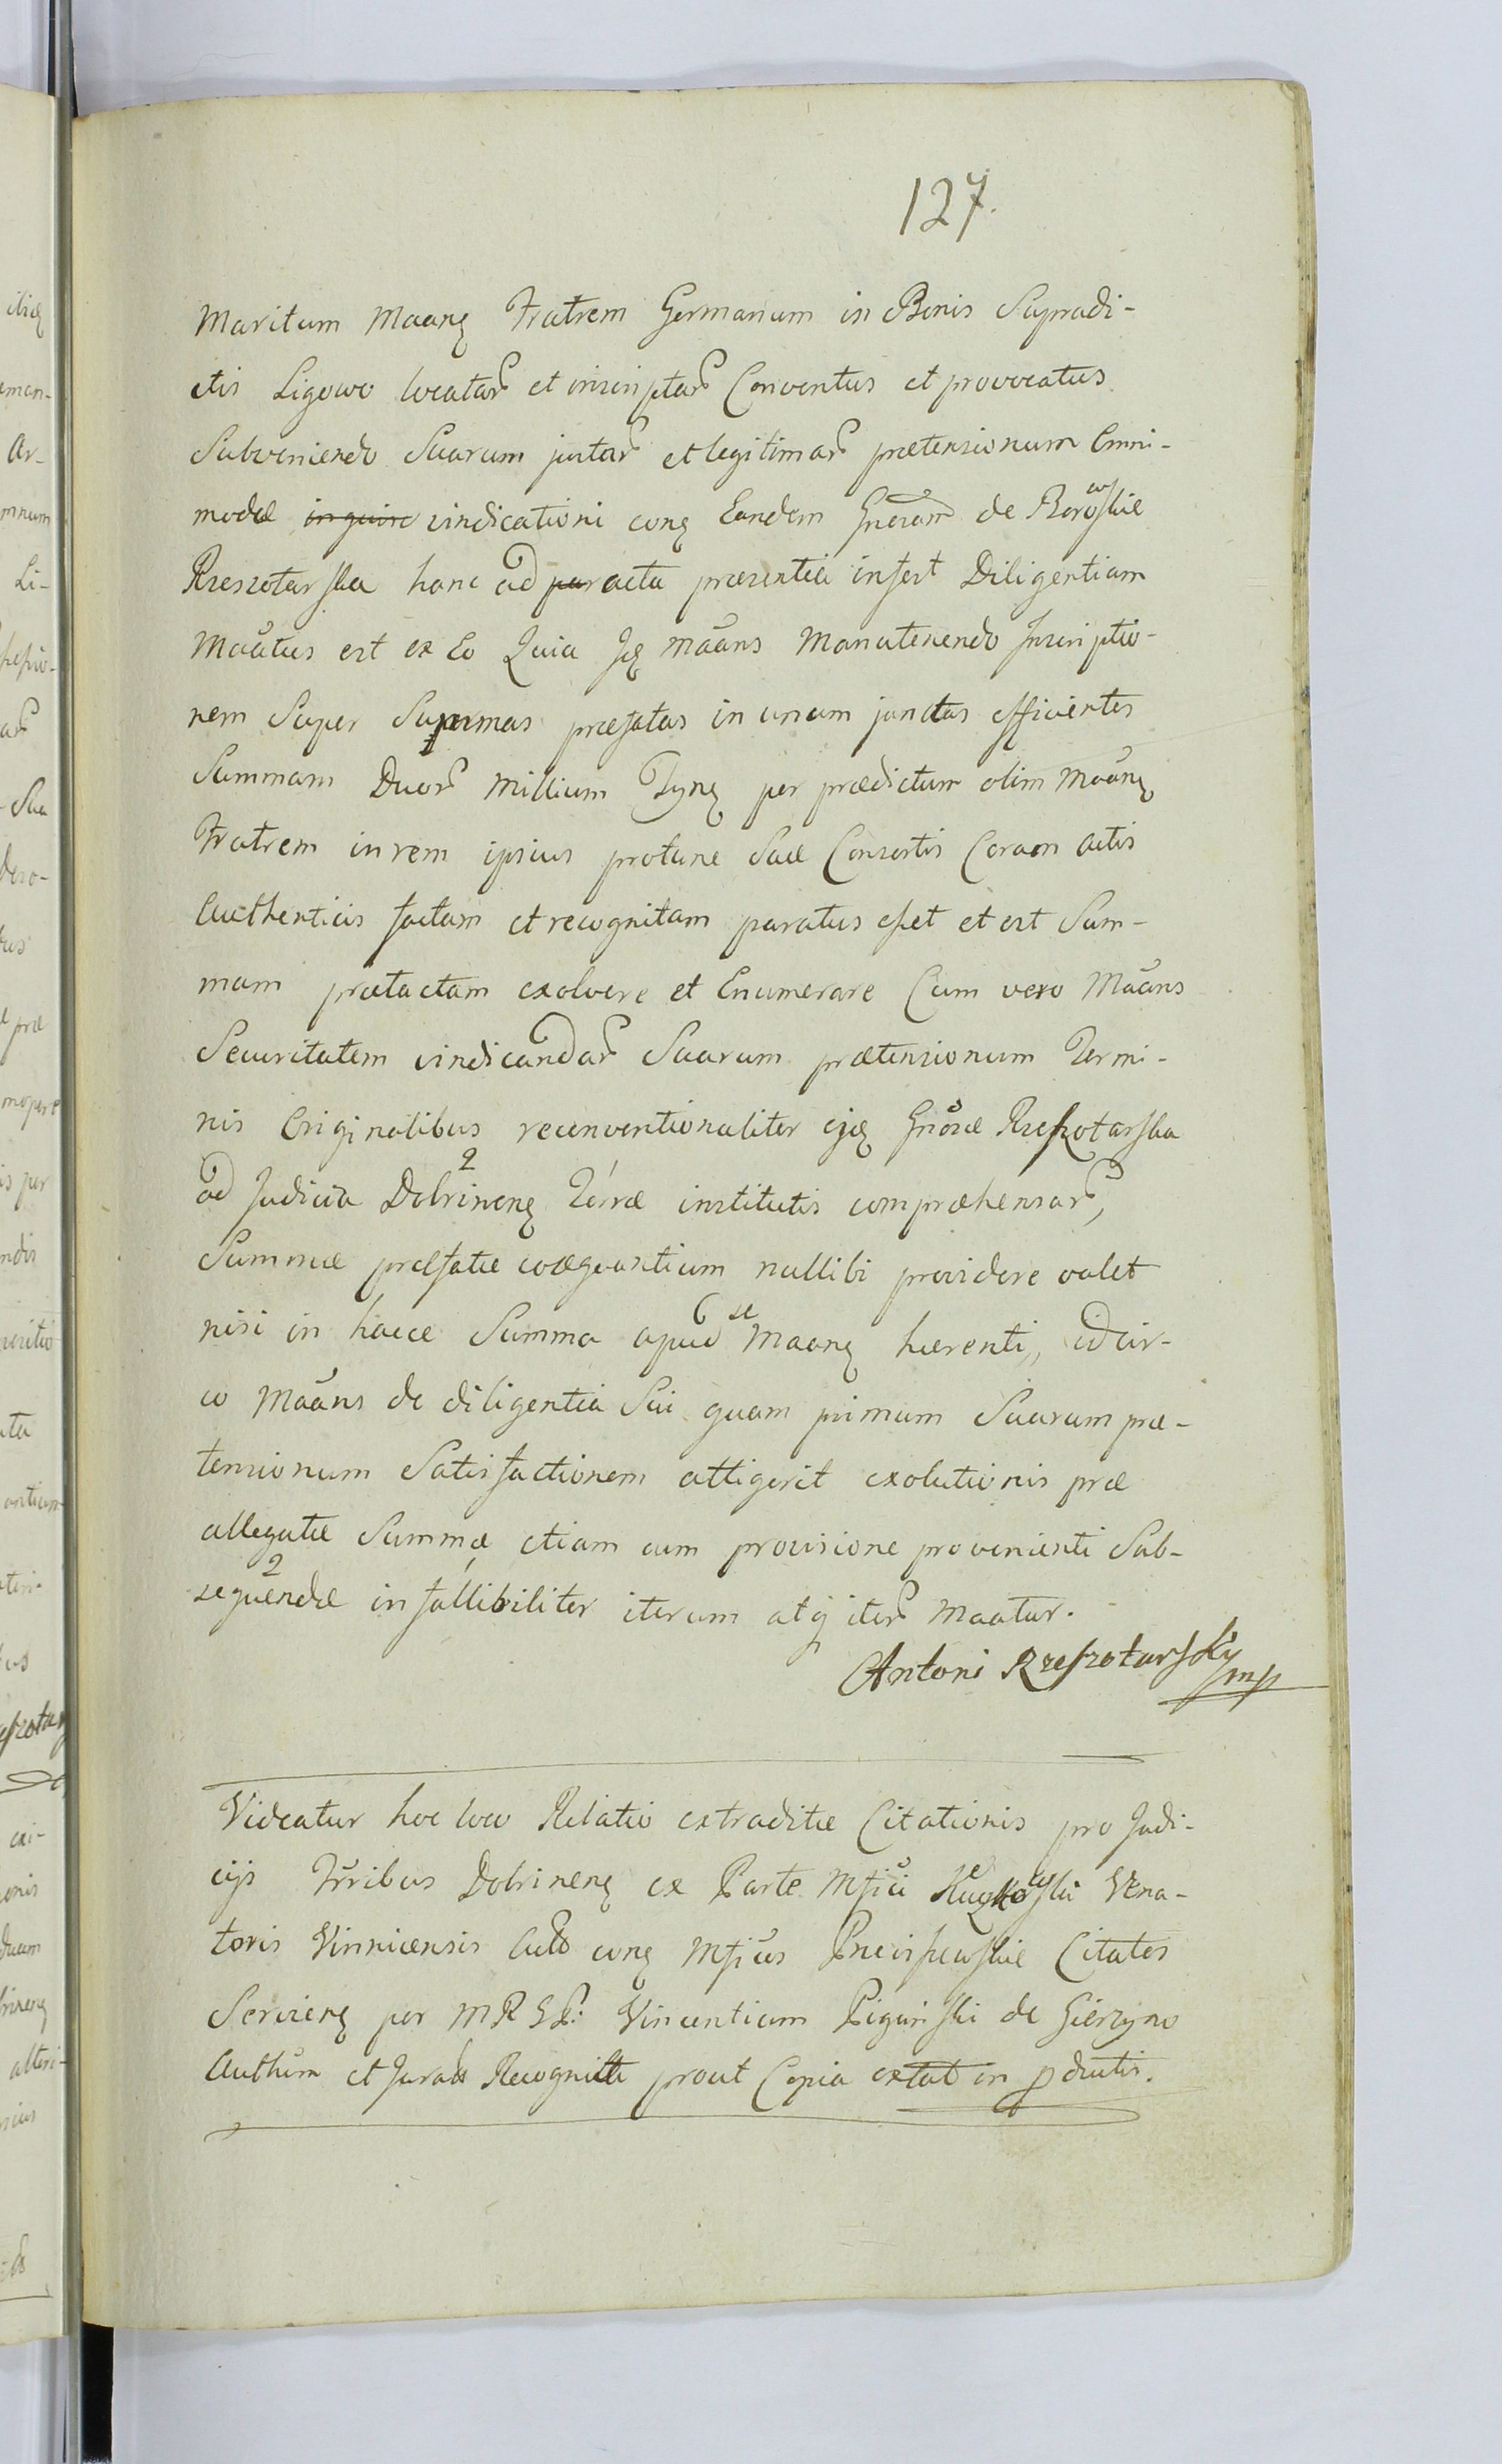 127.
Maritum Maanꝫ Fratrem Germanum in Bonis Supradi-
ctis Ligowo locatar et inscriptar Conventus et provocatus
Subveniendo Suarum justar et legitimar prætensionum Omni-
modæ vindicationi conꝫ Eandem Gnerosam de Borowskie
Rzeszotarska hanc ad acta præsentia infert Diligentiam
Maatus est ex Eo Quia Iꝫ Maans Manutenendo Inscriptio-
nem Super Summas præfatas in unum junctas efficientes
Summam Duor Millium Tynꝫ per prædictum olim Maanꝫ
Fratrem in rem ipsius protunc Suæ Consortis Coram Actis
Authenticis factam et recognitam paratus esset et est Sum-
mam prætactam exolvere et Enumerare Cum vero Maans
Securitatem vindicandar Suarum prætensionum Termi-
nis Originalibus reconventionaliter ejꝫ Gnosæ Rzeszotarska
ad Judicia Dobrinenꝫ Terræ institutis compræhensar,
Summæ præfatæ coæquantium nullibi providere valet
nisi in haece Summa apud se Maanꝫ hærenti, idcir-
co Maans de diligentia Sui quam primum Suarum præ-
tensionum Satisfactionem attigerit exolutionis præ
allegatæ Summæ etiam cum provisione provenienti Sub-
sequendæ infallibiliter iterum atq iter Maatur.
Antoni Rzeszotarsky mp
Videatur hoc loco Relatio extraditæ Citationis pro Judi-
cijs Trribus Dobrinenꝫ ex Parte Mfici Vena-
toris Vinnicensis conꝫ Mficos Citatos
Servienꝫ per M R S P. Vincentium Pigurski de Gierzyno
Authum et Jurato Recognita prout Copia extat in pductis.